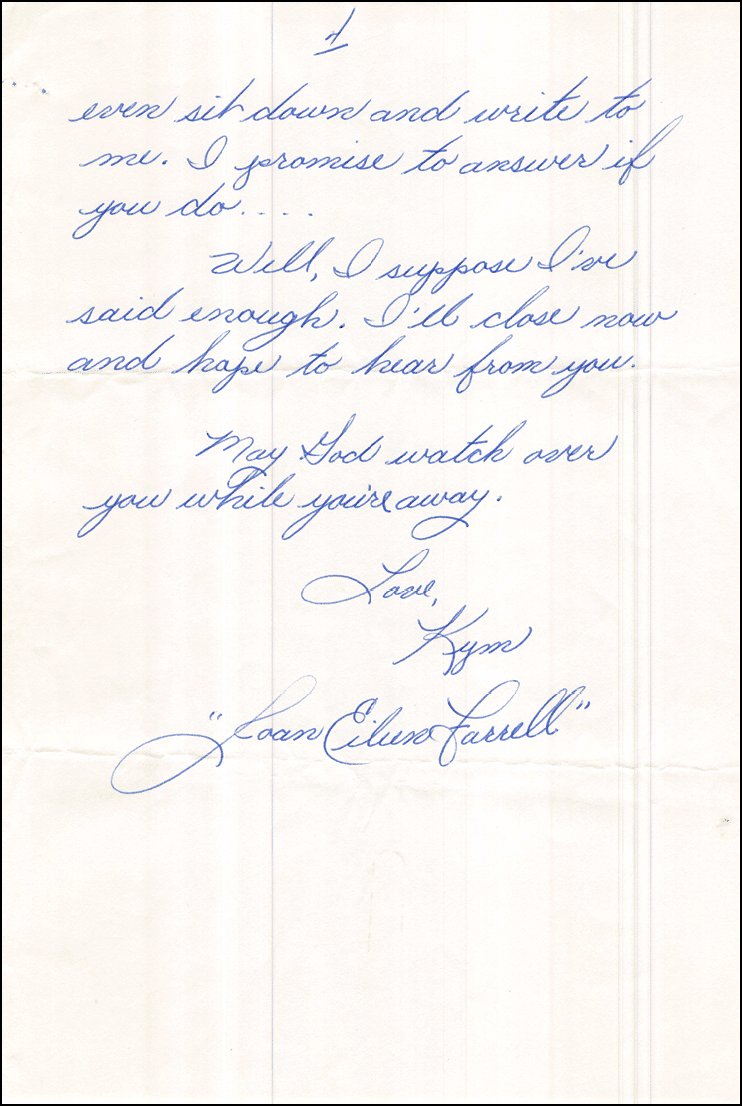 4
even sit down and write to
me. I promise to answer if
you do....
Well, I suppose I've
said enough. I'll close now
and hope to hear from you.
May God watch over
you while you're away.
Love,
Kym
"Joan Eileen Farrell"